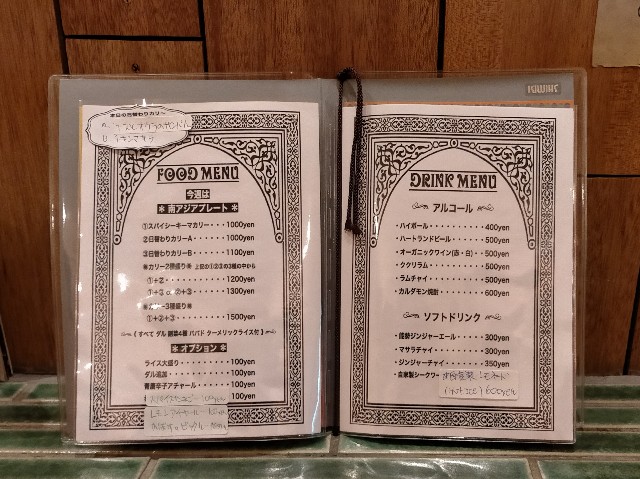 本日の日替わりカリ〜
A.
B.
FOOD MENU
今週は
＊ 南アジアプレート ＊
①スパイシーキーマカリー・・・1000yen
②日替わりカリーA・・・・・・1000yen
③日替わりカリーB・・・・・・1100yen
※カリー2種盛り※ 上記の①②③の3種の中から
①＋②・・・・・・・1200yen
①＋③ or ②＋③・・・・1300yen
※カリー3種盛り※
①＋②＋③・・・・・・1500yen
【 すべて ダル 副菜4種 パパド ターメリックライス付 】
＊ オプション ＊
ライス大盛り・・・・・・100yen
ダル追加・・・・・・・・100yen
青唐辛子アチャール・・・・100yen
DRINK MENU
アルコール
・ハイボール・・・・・・・・・400yen
・ハートランドビール・・・・・・500yen
・オーガニックワイン(赤・白)・・・500yen
・ククリラム・・・・・・・・・500yen
・ラムチャイ・・・・・・・・・500yen
・カルダモン焼酎・・・・・・・・600yen
ソフトドリンク
・能勢ジンジャーエール・・・・・300yen
・マサラチャイ・・・・・・・・300yen
・ジンジャーチャイ・・・・・・・350yen
・自家製シークワー